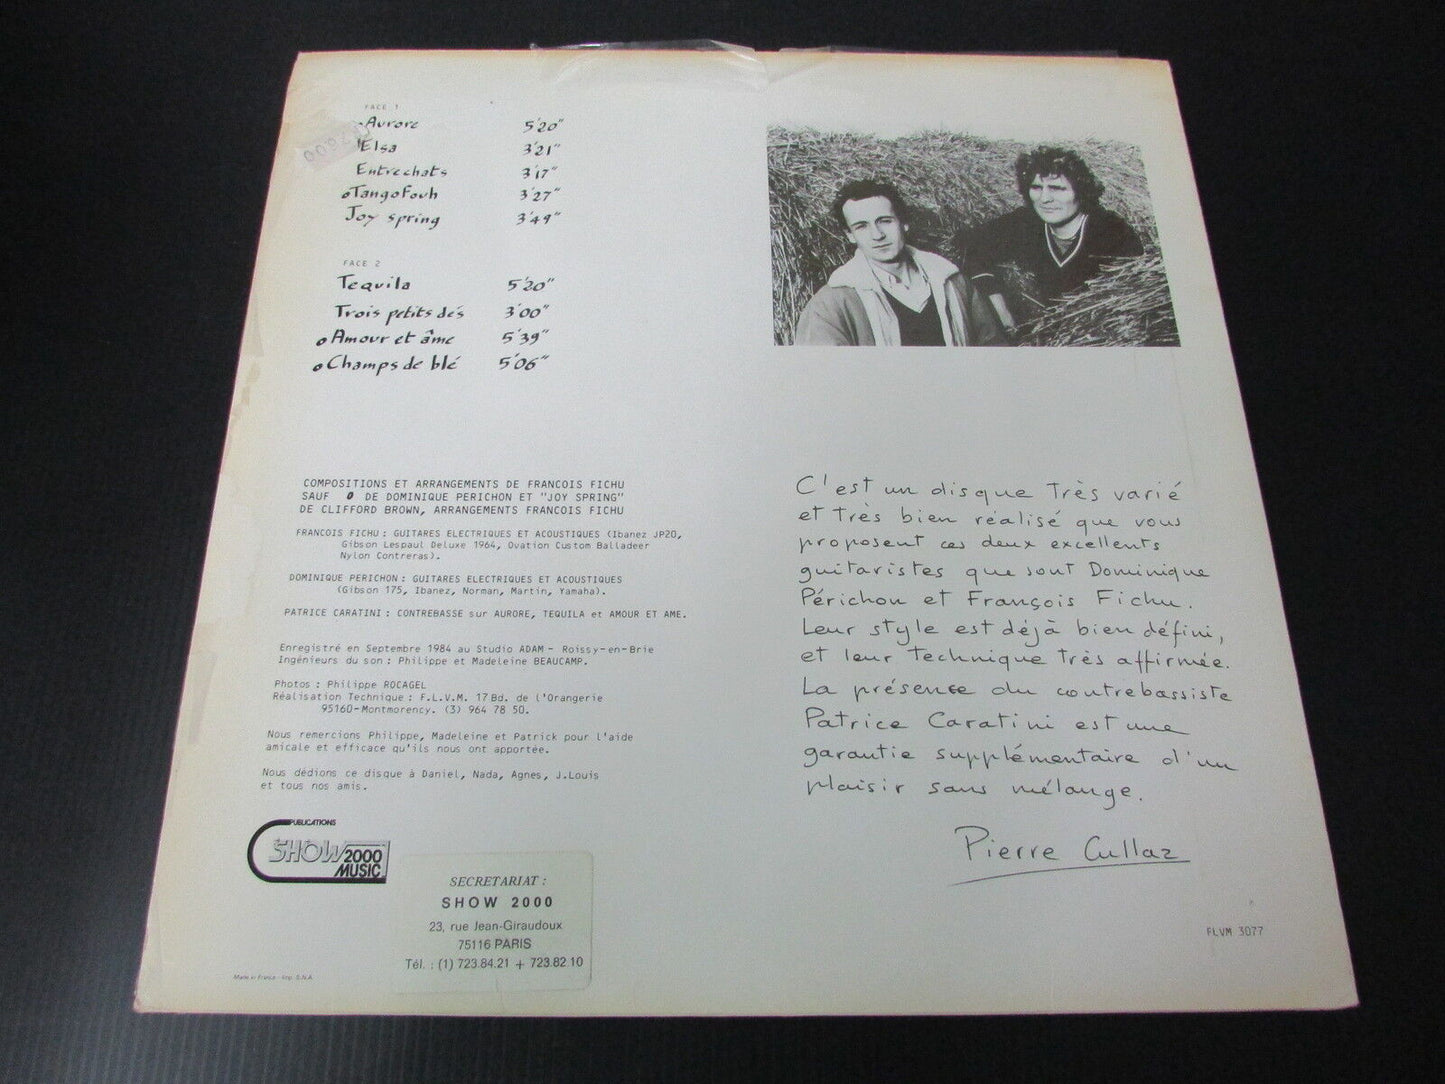 FACE 1
o Aurore 5'20"
Elsa 3'21"
Entrechats 3'17"
o Tango Fouh 3'27"
Joy spring 3'49"
FACE 2
Tequila 5'20"
Trois petits dés 3'00"
o Amour et âme 5'39"
o Champs de blé 5'06"
COMPOSITIONS ET ARRANGEMENTS DE FRANCOIS FICHU
SAUF o DE DOMINIQUE PERICHON ET "JOY SPRING"
DE CLIFFORD BROWN, ARRANGEMENTS FRANCOIS FICHU
FRANCOIS FICHU : GUITARES ELECTRIQUES ET ACOUSTIQUES (Ibanez JP20,
Gibson Lespaul Deluxe 1964, Ovation Custom Balladeer
Nylon Contreras).
DOMINIQUE PERICHON : GUITARES ELECTRIQUES ET ACOUSTIQUES
(Gibson 175, Ibanez, Norman, Martin, Yamaha).
PATRICE CARATINI : CONTREBASSE sur AURORE, TEQUILA et AMOUR ET AME.
Enregistré en Septembre 1984 au Studio ADAM - Roissy-en-Brie
Ingénieurs du son : Philippe et Madeleine BEAUCAMP.
Photos : Philippe ROCAGEL
Réalisation Technique : F.L.V.M. 17 Bd. de l'Orangerie
95160-Montmorency. (3) 964 78 50.
Nous remercions Philippe, Madeleine et Patrick pour l'aide
amicale et efficace qu'ils nous ont apportée.
Nous dédions ce disque à Daniel, Nada, Agnes, J.Louis
et tous nos amis.
PUBLICATIONS
SHOW 2000
MUSIC
SECRETARIAT :
SHOW 2000
23, rue Jean-Giraudoux
75116 PARIS
Tél. : (1) 723.84.21 + 723.82.10
Made in France - Imp. S.N.A.
C'est un disque très varié
et très bien réalisé que vous
proposent ces deux excellents
guitaristes que sont Dominique
Périchon et François Fichu.
Leur style est déjà bien défini,
et leur technique très affirmée.
La présence du contrebassiste
Patrice Caratini est une
garantie supplémentaire d'un
plaisir sans mélange.
Pierre Cullaz
FLVM 3077